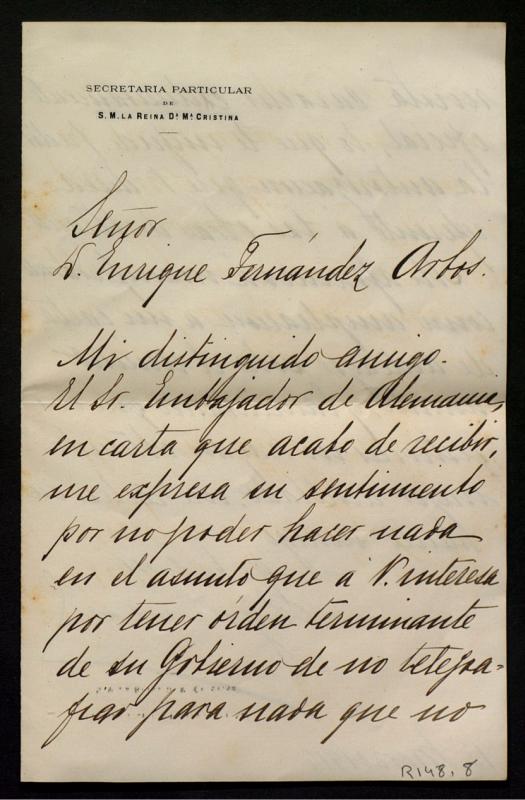 SECRETARIA PARTICULAR
DE
S. M. LA REINA Dª Mª CRISTINA
Señor
D. Enrique Fernández Arbos.
Mi distinguido amigo.
El Sr. Embajador de Alemania,
en carta que acabo de recibir,
me expresa su sentimiento
por no poder hacer nada
en el asunto que á V. interesa
por tener órden terminante
de su Gobierno de no telegra=
fiar para nada que no
R148, 8